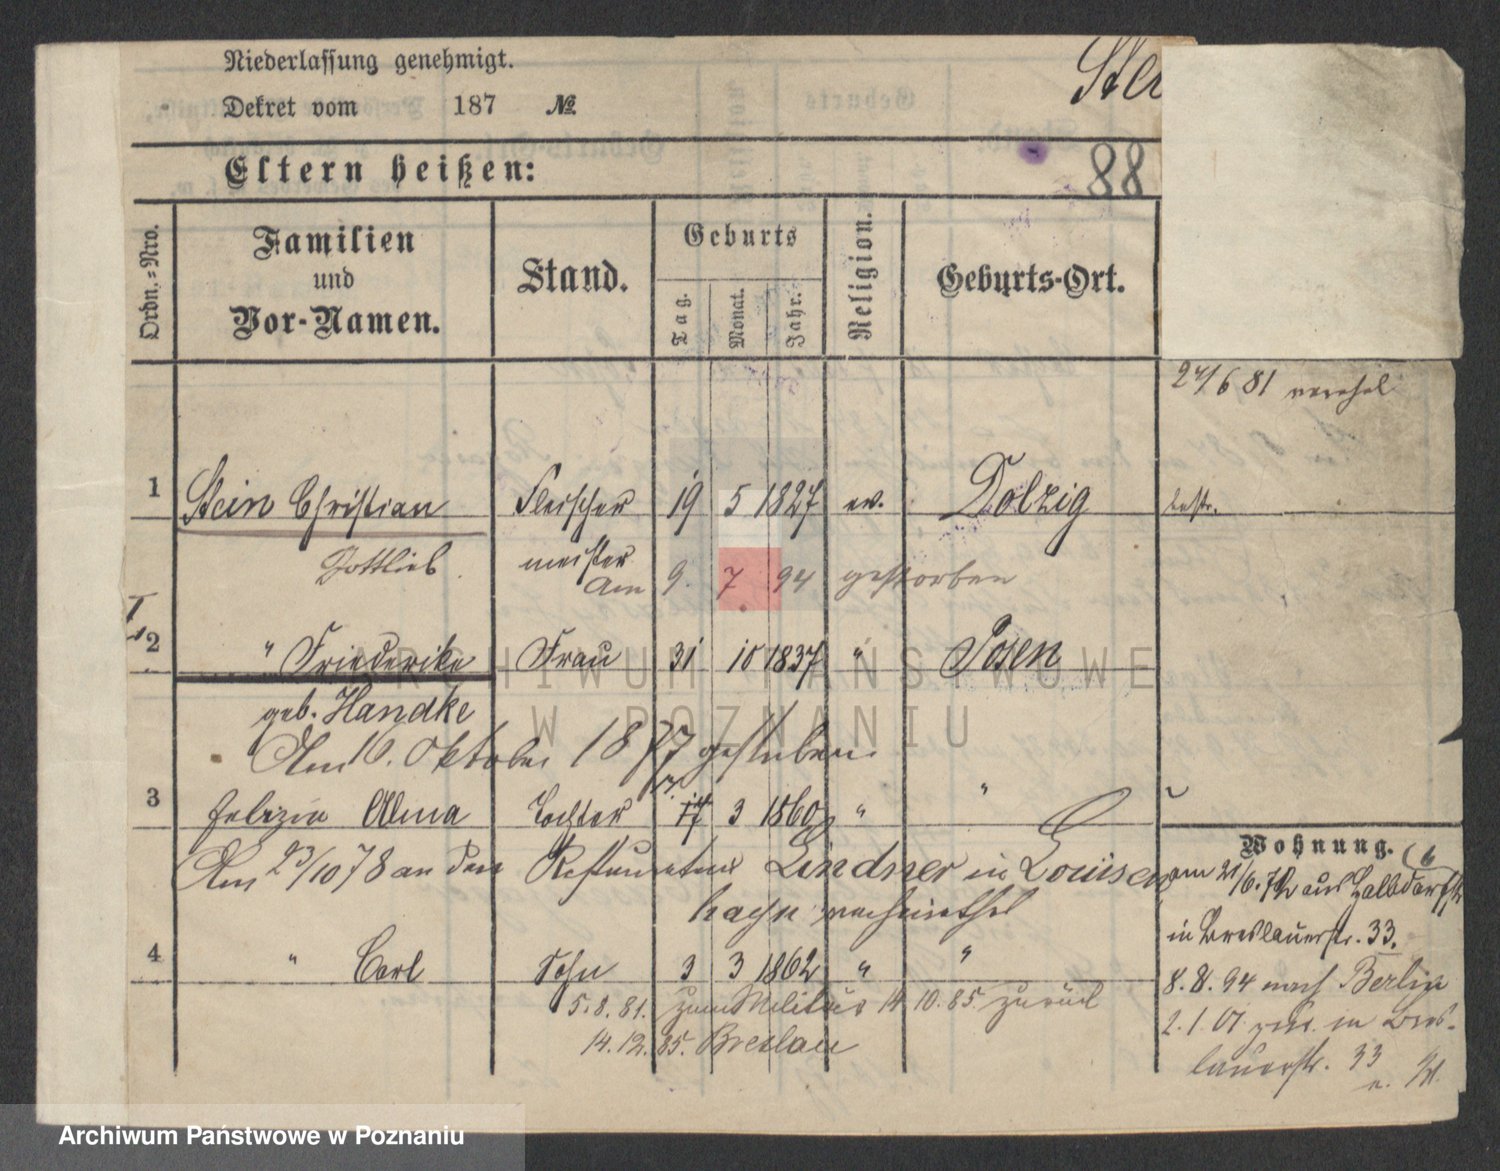 Niederlassung genehmigt.
Dekret vom 187 №
Ste
Eltern heißen:
88
Ordn.=Nro.
Familien
und
Vor-Namen.
Stand.
Geburts
Tag.
Monat.
Jahr.
Religion.
Geburts-Ort.
24/6 81
1 Stein Christian Fleischer 19 5 1827 ev. Dolzig
Gottlieb meister
Am 9. 7. 94 gestorben
2 " Friederike Frau 31 10 1837 " Posen
geb. Handke
Am 10. Oktober 1877 gestorben.
3 Felizia Alma Tochter 17 3 1860 " "
Am 23/10 78 an den Restaurateur Lindner in Louisen
hayn verheirathet
4 " Carl Sohn 3 3 1862 " "
5.8.81. zum Militär 14 10.85. zurück
14.12.85. Breslau
Wohnung.
am 21/6. 72 aus Halbdorfstr
in Breslauerstr. 33.
8.8.94 nach Berlin
2.1.01 zur. in Bres-
lauerstr. 33
ARCHIWUM PAŃSTWOWE
W POZNANIU
Archiwum Państwowe w Poznaniu